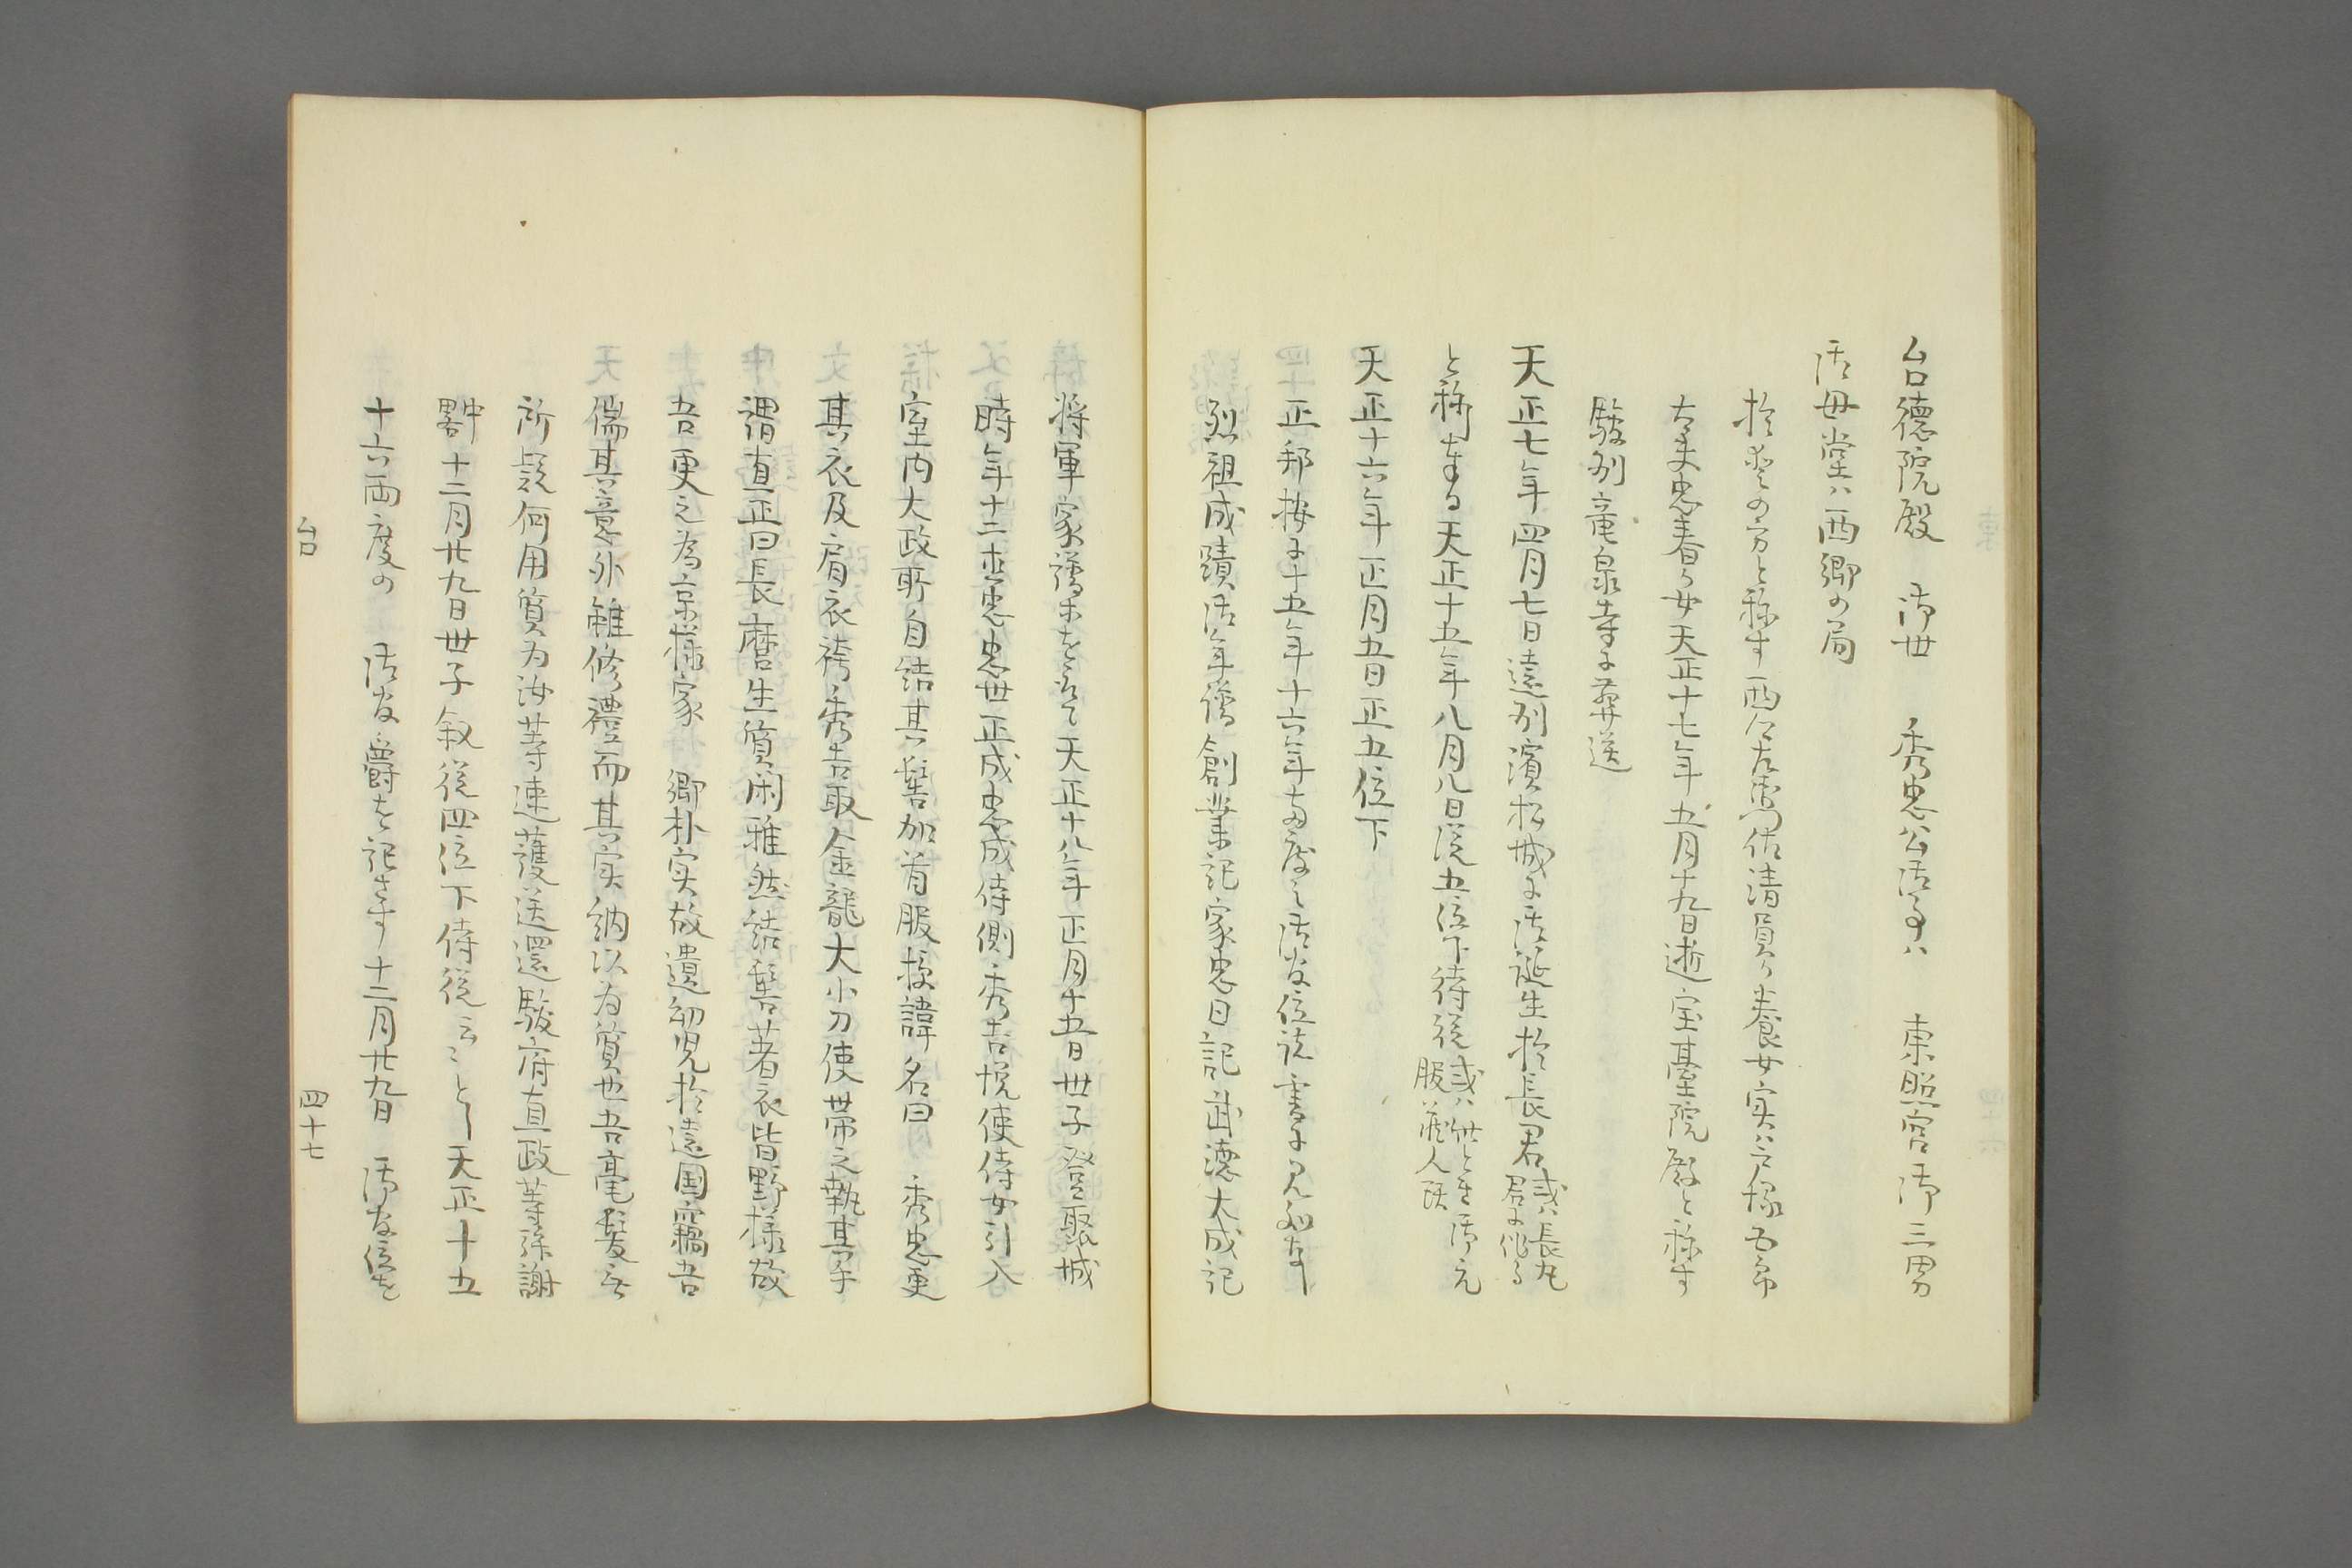 台徳院殿　御世　秀忠公御事ハ　東照宮御三男
御母堂ハ西郷の局
於愛の方と称す西郷左衛門佐清員ゟ養女実ハ戸塚五郎
太夫忠春ゟ女天正十七年五月十九日逝宝臺院殿と称す
駿州竜泉寺に葬送
天正七年四月七日遠州濱松城に御誕生於長君或ハ長丸
君に作る
と称奉る天正十五年八月八日従五位下侍従或ハ此とき御元
服蔵人頭
天正十六年正月五日正五位下
正邦按に十五年十六年両度之御叙位諸書に見え
烈祖成蹟御年譜創業記家忠日記武徳大成記
将軍家譜
天正十八年正月十五日世子登聚城
時年十二直忠世正成忠成侍側秀吉悦使侍女引入
室内大政所自結其髻加首服授諱名曰　秀忠更
其衣及肩衣袴秀吉取金龍大小刀使帯之執其手
謂直正曰長麿生質閑雅然結髻著衣皆野様故
吾更之為京様家　卿朴実故遺幼児於遠国竊吾
儻其意外雖修禮而其实納以为質也吾毫髪無
所疑何用質为汝等速護送還駿府直政等拜謝
畧中十二月廿九日世子叙従四位下侍従云々とし天正十五
十六両度の　御叙爵を記さす十二月廿九日　御叙位を
台　四十七